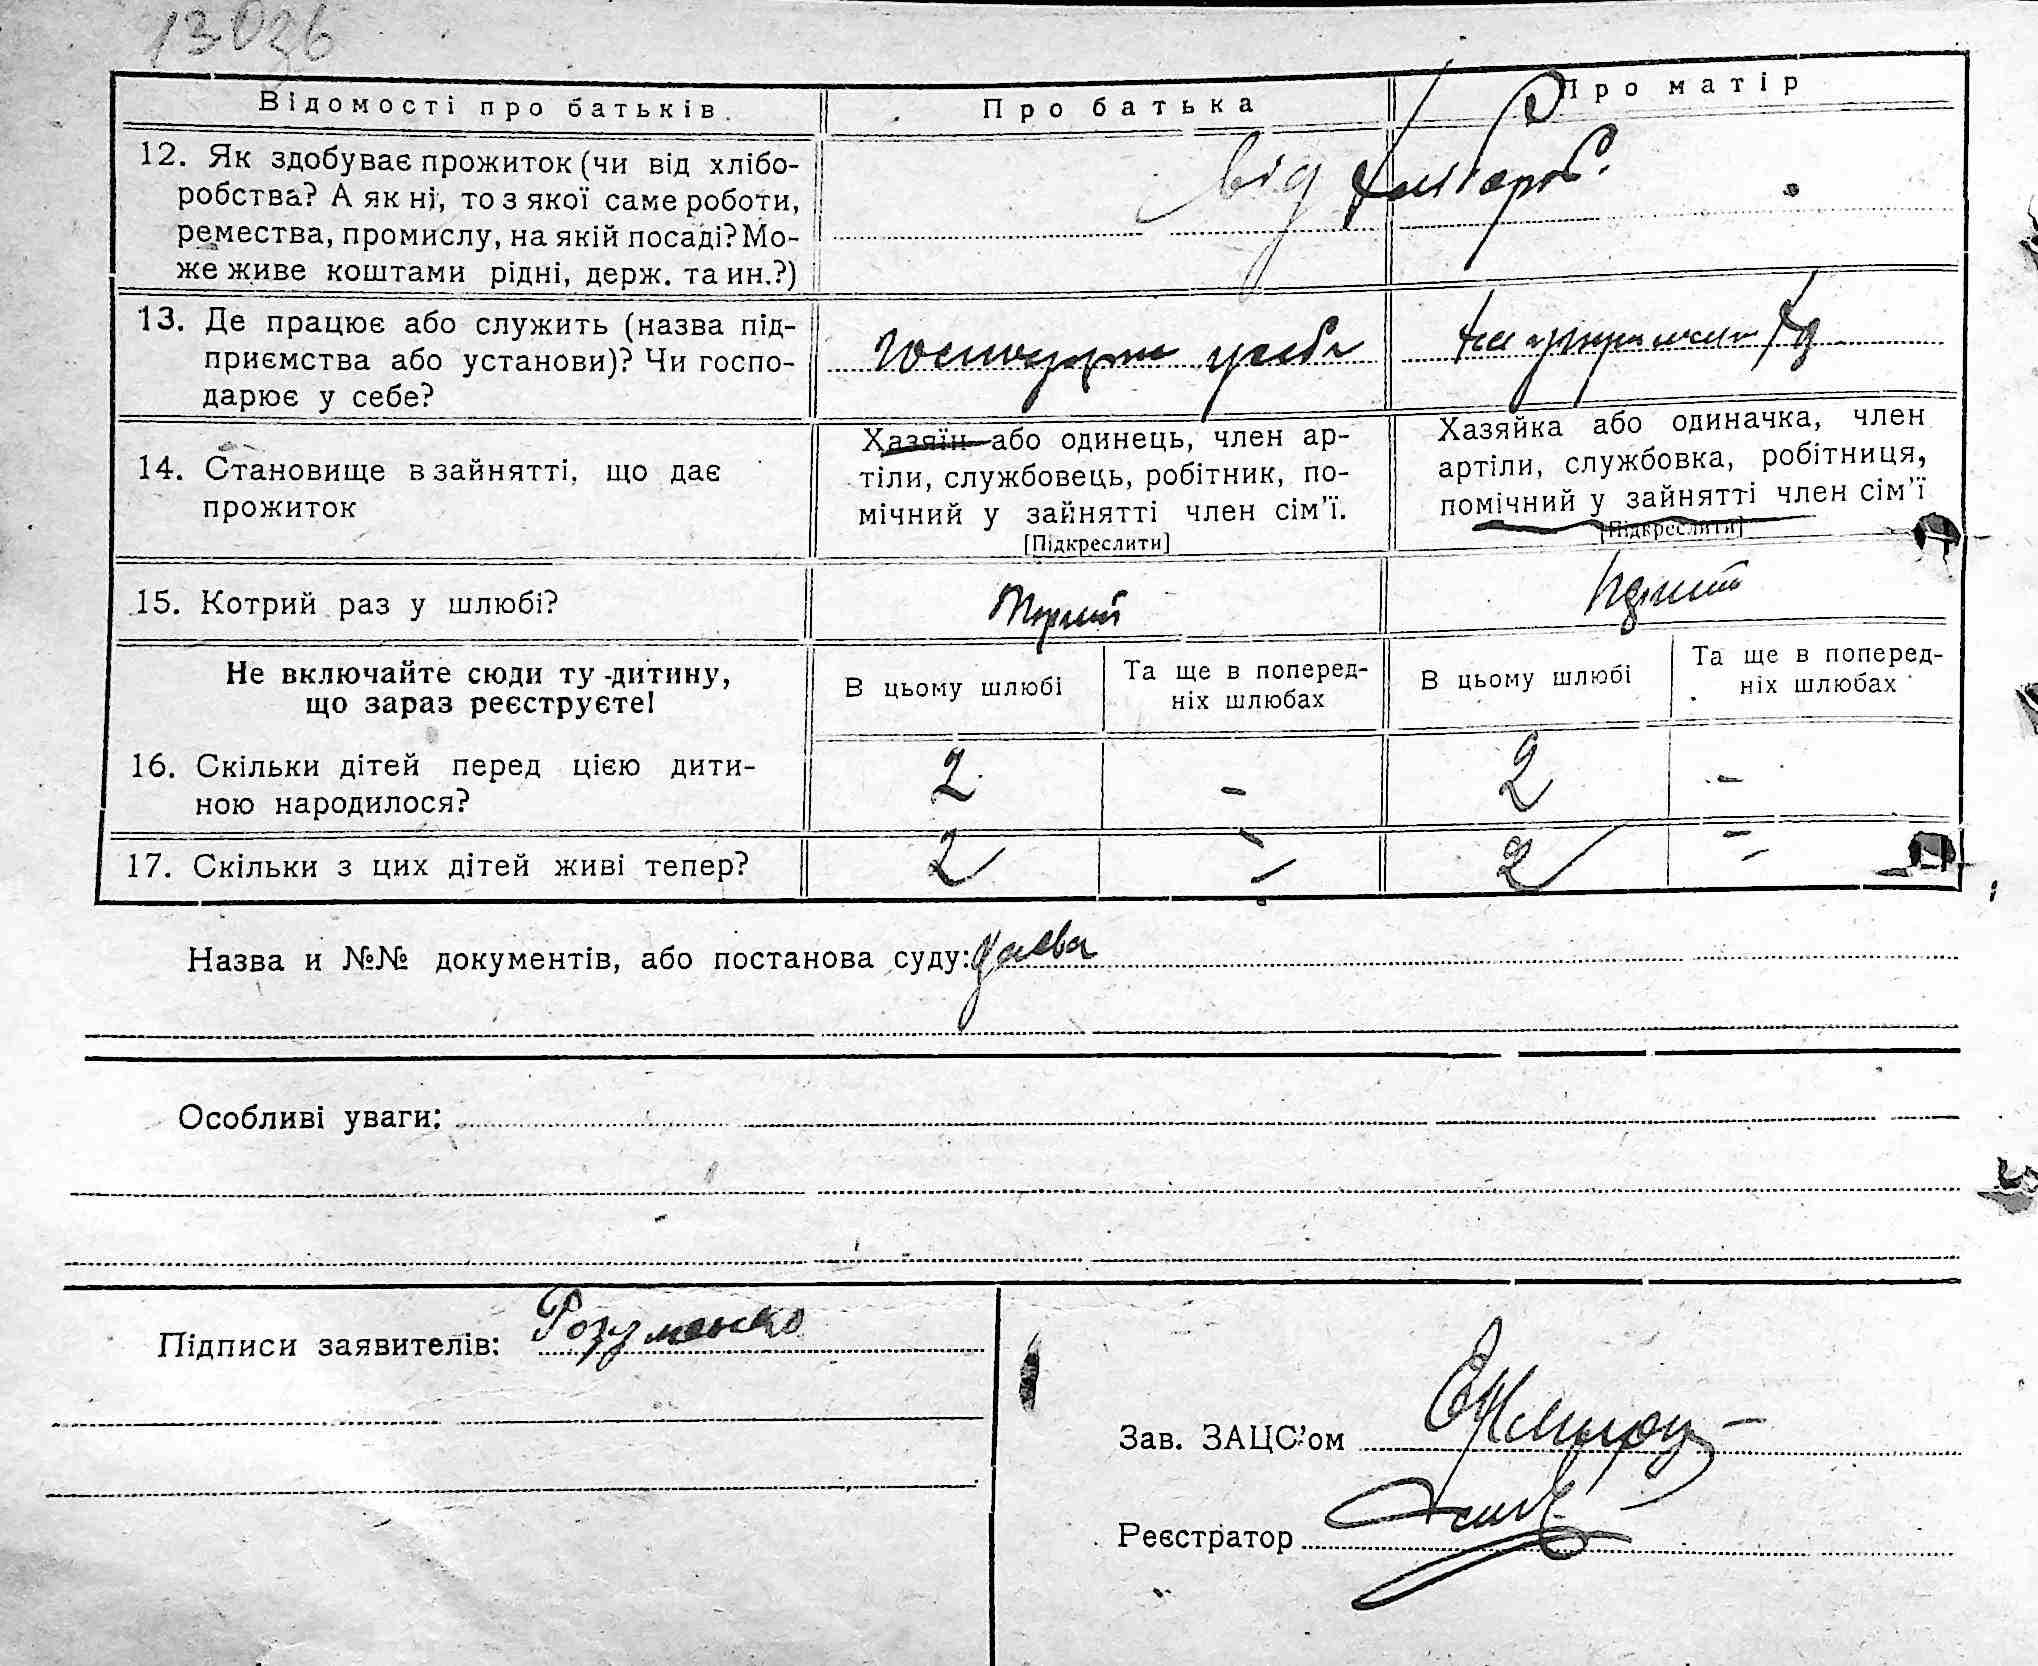 Відомості про батьків.
Про батька
Про матір
12. Як здобуває прожиток (чи від хлібо-
робства? А як ні, то з якої саме роботи,
ремества, промислу, на якій посаді? Мо-
же живе коштами рідні, держ. та ин.?)
від хлібороб.
13. Де працює або служить (назва під-
приємства або установи)? Чи госпо-
дарює у себе?
14. Становище в зайнятті, що дає
прожиток
Хазяїн або одинець, член ар-
тіли, службовець, робітник, по-
мічний у зайнятті член сім'ї.
[Підкреслити]
Хазяйка або одиначка, член
артіли, службовка, робітниця,
помічний у зайнятті член сім'ї
[Підкреслити]
15. Котрий раз у шлюбі?
Перший
Не включайте сюди ту дитину,
що зараз реєструєте!
В цьому шлюбі
Та ще в поперед-
ніх шлюбах
В цьому шлюбі
Та ще в поперед-
ніх шлюбах
16. Скільки дітей перед цією дити-
ною народилося?
2 - 2 -
17. Скільки з цих дітей живі тепер?
2 - 2 -
Назва и №№ документів, або постанова суду:
Особливі уваги:
Підписи заявителів: Розуменко
Зав. ЗАЦС'ом
Реєстратор